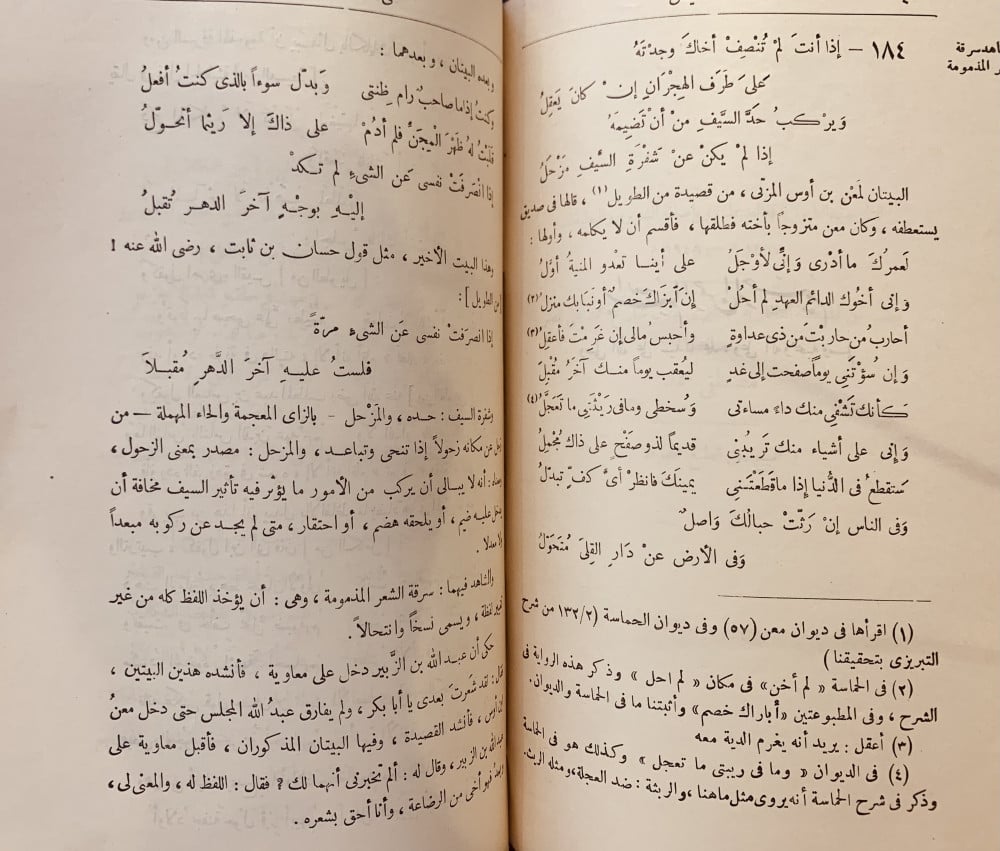 شاهد سرقة
الشعر المذمومة
١٨٤ — إذا أنتَ لمْ تُنْصِفْ أخاكَ وجدْتَهُ
عَلَى طَرَفِ الهِجْرَانِ إِنْ كانَ يَعقِلُ
وَيرْكَبُ حدَّ السَّيفِ مِنْ أنْ تَضِيمَهُ
إذا لمْ يكنْ عنْ شَفْرَةِ السَّيفِ مَزْحَلُ
البيتان لمَعْن بن أوس المزنى ، من قصيدة من الطويل (١) ، قالها فى صديق
يستعطفه ، وكان معن متزوجاً بأخته فطلقها ، فأقسم أن لا يكلمه ، وأولها :
لَعمرُكَ ما أدْرى وَإنِّى لأوْجَلُ على أيِّنا تعْدو المنيةُ أوَّلُ
وَإنى أخُوك الدائم العهدِ لم أحُلْ إنَ ابزاكَ خصمٌ أو نَبَابك منزلُ (٢)
أحاربُ من حاربْتَ من ذى عداوةٍ وأحبسُ مالى إن غَرِمْتَ فأعقِلُ (٣)
وَإن سُؤْتَنى يوماً صفحت إلى غدٍ ليُعقب يوماً منك آخرُ مُقْبِلُ
كأنك تَشْفِى منك داءَ مساءتى وَسُخطى وما فى رَيْثَتِى ما تَعَجَّلُ (٤)
وَإنى على أشياء منك تَرِيبُنِى قديماً لذو صَفْحٍ على ذاك مُجْمِلُ
سَتقطعُ فى الدُّنيا إذا ما قطَعْتَنِى يمينَكَ فانظرْ أىَّ كفٍّ تبدَّلُ
وَفى الناس إنْ رَثّتْ حبالُكَ وَاصلٌ
وَفى الأرض عنْ دَارِ القِلَى مُتَحَوَّلُ
(١) اقرأها فى ديوان معن (٥٧) وفى ديوان الحماسة (٢/١٣٢ من شرح
التبريزى بتحقيقنا)
(٢) فى الحماسة « لم أخن» فى مكان « لم احل » وذكر هذه الرواية فى
الشرح ، وفى المطبوعتين «أباراك خصم» وأثبتنا ما فى الحماسة والديوان.
(٣) أعقل : يريد أنه يغرم الدية معه
(٤) فى الديوان « وما فى ريبتى ما تعجل » وكذلك هو فى الحماسة
وذكر فى شرح الحماسة أنه يروى مثل ماهنا ، والريثة : ضد العجلة، ومثله الريث.
وبعده البيتان ، وبعدهما :
وكنتُ إذا ما صاحبٌ رام ظِنتى وَبدّل سوءاً بالذى كنتُ أفعلُ
قلَبْتُ لهُ ظَهْرَ الْمِجَنِّ فلم أدُمْ على ذاكَ إلا رَيثما أتحوّلُ
إذا انْصرَفَتْ نفسى عَن الشىءِ لم تكدْ
إليْهِ بوجْهٍ آخرَ الدهرِ تُقبلُ
وهذا البيت الأخير ، مثل قول حسان بن ثابت ، رضى الله عنه !
[من الطويل] :
إذا انصرَفتْ نفسى عَن الشىءِ مرّةً
فلستُ عليهِ آخرَ الدَّهرِ مُقبلاَ
وشفرة السيف : حده ، والمَزْحل - بالزاى المعجمة والحاء المهملة — من
زحل عن مكانه زحولاً إذا تنحى وتباعد ، والمزحل : مصدر بمعنى الزحول ،
ومعناه : أنه لا يبالى أن يركب من الأمور ما يؤثر فيه تأثير السيف مخافة أن
يدخل عليه ضيم ، أو يلحقه هضم ، أو احتقار ، متى لم يجد عن ركوبه مبعداً
ولا معدلا .
والشاهد فيهما : سرقة الشعر المذمومة ، وهى : أن يؤخذ اللفظ كله من غير
تغيير لفظة ، ويسمى نسخاً وانتحالاً .
حكى أن عبد الله بن الزَّبير دخل على معاوية ، فأنشده هذين البيتين ،
فقال : لقد شَعرتَ بعدى يا أبا بكر ، ولم يفارق عبدُ الله المجلس حتى دخل معنُ
ابن أوس ، فأنشد القصيدة ، وفيها البيتان المذكوران ، فأقبل معاوية على
عبدالله بن الزبير ، وقال له : ألم تخبرنى أنهما لك ? فقال : اللفظ له ، والمعنى لى ،
فهو أخى من الرضاعة ، وأنا أحق بشعره .